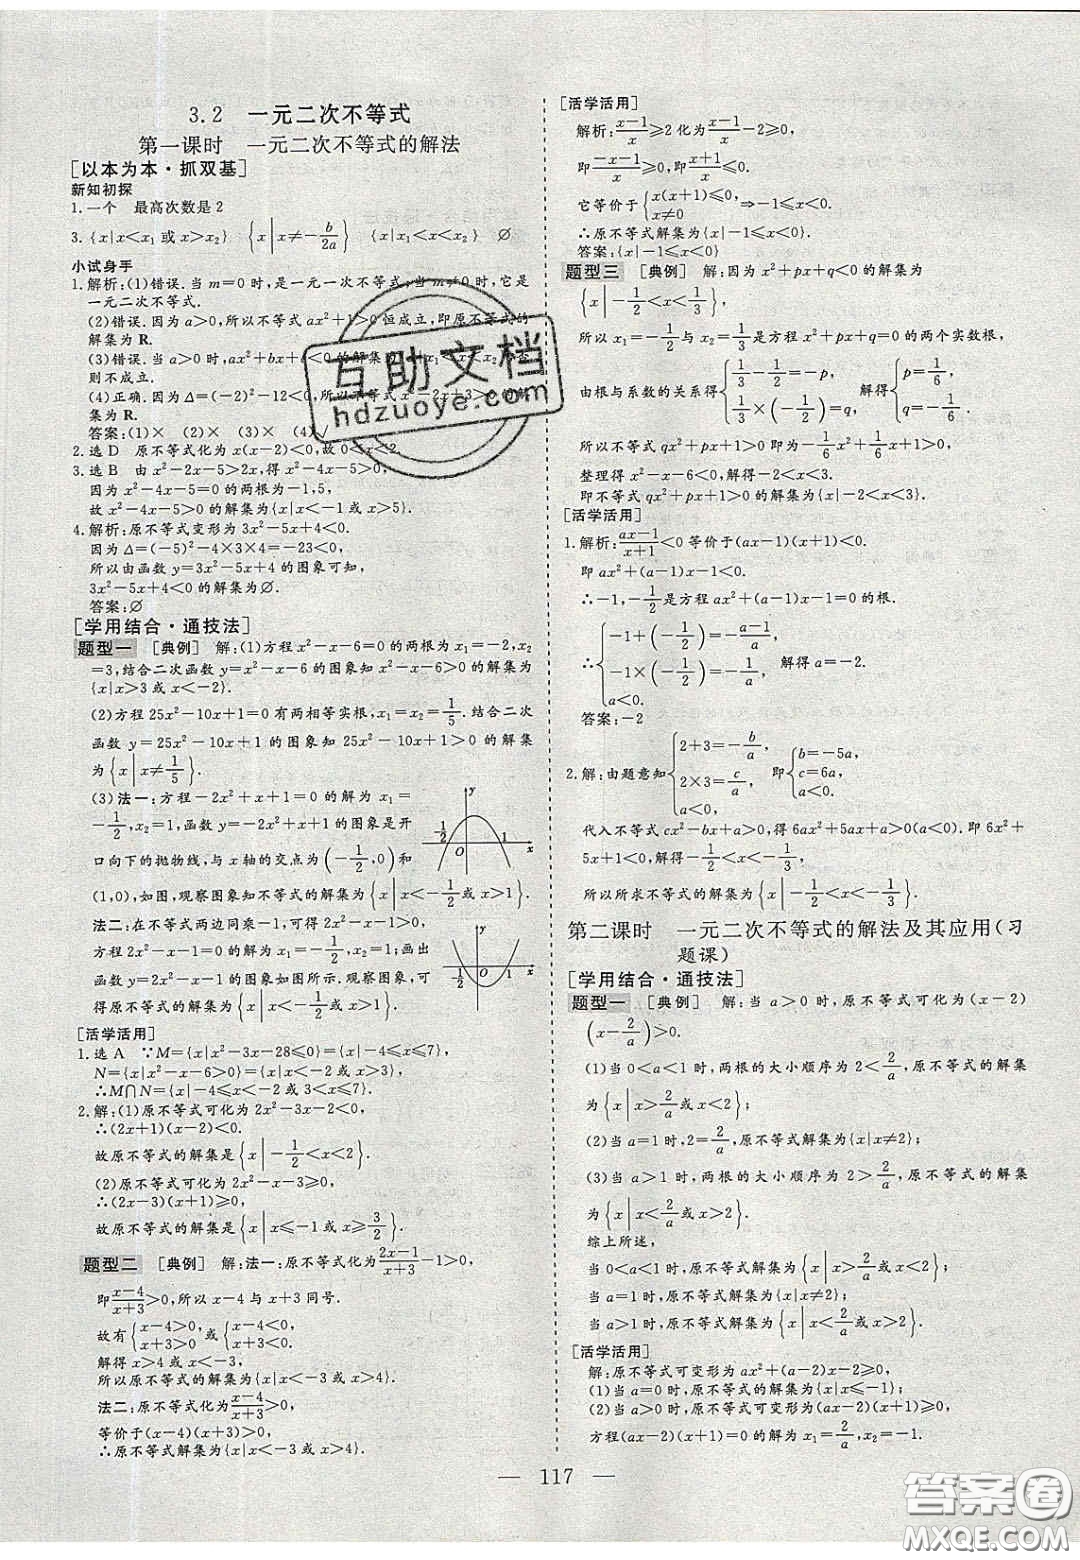 3.2 一元二次不等式
第一课时 一元二次不等式的解法
[以本为本·抓双基]
新知初探
1.一个 最高次数是2
3.{x|x<x₁或x>x₂} {x|x≠-b/2a} {x|x₁<x<x₂} ∅
小试身手
1.解析:(1)错误.当m=0时,是一元一次不等式;当m≠0时,它是
一元二次不等式.
(2)错误.因为a>0,所以不等式ax²+1>0恒成立,即原不等式的
解集为R.
(3)错误.当a>0时,ax²+bx+c<0的解集为{x|x₁<x<x₂},否
则不成立.
(4)正确.因为Δ=(-2)²-12<0,所以不等式x²-2x+3>0的解
集为R.
答案:(1)× (2)× (3)× (4)√
2.选D 原不等式化为x(x-2)<0,故0<x<2.
3.选B 由x²-2x-5>2x,得x²-4x-5>0,
因为x²-4x-5=0的两根为-1,5,
故x²-4x-5>0的解集为{x|x<-1或x>5}.
4.解析:原不等式变形为3x²-5x+4<0.
因为Δ=(-5)²-4×3×4=-23<0,
所以由函数y=3x²-5x+4的图象可知,
3x²-5x+4<0的解集为∅.
答案:∅
[学用结合·通技法]
题型一 [典例] 解:(1)方程x²-x-6=0的两根为x₁=-2,x₂
=3,结合二次函数y=x²-x-6的图象知x²-x-6>0的解集为
{x|x>3或x<-2}.
(2)方程25x²-10x+1=0有两相等实根,x₁=x₂=1/5.结合二次
函数y=25x²-10x+1的图象知25x²-10x+1>0的解集
为{x|x≠1/5}.
(3)法一:方程-2x²+x+1=0的解为x₁=
-1/2,x₂=1,函数y=-2x²+x+1的图象是开
口向下的抛物线,与x轴的交点为(-1/2,0)和
(1,0),如图,观察图象知不等式的解集为{x|x<-1/2或x>1}.
y
-1/2 O 1 x
法二:在不等式两边同乘-1,可得2x²-x-1>0.
方程2x²-x-1=0的解为x₁=-1/2,x₂=1;画出
函数y=2x²-x-1的图象如图所示.观察图象,可
得原不等式的解集为{x|x<-1/2或x>1}.
y
-1/2 O 1 x
[活学活用]
1.选A ∵M={x|x²-3x-28≤0}={x|-4≤x≤7},
N={x|x²-x-6>0}={x|x<-2或x>3},
∴M∩N={x|-4≤x<-2或3<x≤7}.
2.解:(1)原不等式可化为2x²-3x-2<0,
∴(2x+1)(x-2)<0.
故原不等式的解集是{x|-1/2<x<2}.
(2)原不等式可化为2x²-x-3≥0,
∴(2x-3)(x+1)≥0,
故原不等式的解集是{x|x≤-1或x≥3/2}.
题型二 [典例] 解:法一:原不等式化为(2x-1)/(x+3)-1>0,
即(x-4)/(x+3)>0,所以x-4与x+3同号.
故有{x-4>0, x+3>0 或{x-4<0, x+3<0,
解得x>4或x<-3,
所以原不等式解集为{x|x<-3或x>4}.
法二:原不等式化为(x-4)/(x+3)>0,
等价于(x-4)(x+3)>0,
∴原不等式解集为{x|x<-3或x>4}.
[活学活用]
解析:(x-1)/x≥2化为(x-1)/x-2≥0,
即(-x-1)/x≥0,即(x+1)/x≤0.
它等价于{x(x+1)≤0, x≠0⇒-1≤x<0,
∴原不等式解集为{x|-1≤x<0}.
答案:{x|-1≤x<0}
题型三 [典例] 解:因为x²+px+q<0的解集为
{x|-1/2<x<1/3},
所以x₁=-1/2与x₂=1/3是方程x²+px+q=0的两个实数根,
由根与系数的关系得{1/3-1/2=-p, 1/3×(-1/2)=q, 解得{p=1/6, q=-1/6.
所以不等式qx²+px+1>0即为-1/6x²+1/6x+1>0,
整理得x²-x-6<0,解得-2<x<3.
即不等式qx²+px+1>0的解集为{x|-2<x<3}.
[活学活用]
1.解析:(ax-1)/(x+1)<0等价于(ax-1)(x+1)<0.
即ax²+(a-1)x-1<0.
∴-1,-1/2是方程ax²+(a-1)x-1=0的根.
∴{-1+(-1/2)=-(a-1)/a, -1×(-1/2)=-1/a, a<0. 解得a=-2.
答案:-2
2.解:由题意知{2+3=-b/a, 2×3=c/a, a<0, 即{b=-5a, c=6a, a<0.
代入不等式cx²-bx+a>0,得6ax²+5ax+a>0(a<0).即6x²+
5x+1<0,解得-1/2<x<-1/3,
所以所求不等式的解集为{x|-1/2<x<-1/3}.
第二课时 一元二次不等式的解法及其应用(习
题课)
[学用结合·通技法]
题型一 [典例] 解:当a>0时,原不等式可化为(x-2)
(x-2/a)>0.
(1)当0<a<1时,两根的大小顺序为2<2/a,原不等式的解集
为{x|x>2/a或x<2};
(2)当a=1时,2=2/a,原不等式解集为{x|x≠2};
(3)当a>1时,两根的大小顺序为2>2/a,原不等式的解集
为{x|x>2或x<2/a}.
综上所述,
当0<a<1时,原不等式解集为{x|x>2/a或x<2};
当a=1时,原不等式解集为{x|x≠2};
当a>1时,原不等式解集为{x|x>2或x<2/a}.
[活学活用]
解:原不等式可变形为ax²+(a-2)x-2≥0,
(1)当a=0时,原不等式的解集为{x|x≤-1};
(2)当a>0时,原不等式可变形为(ax-2)(x+1)≥0,
方程(ax-2)(x+1)=0的解为x₁=2/a,x₂=-1.
— 117 —
互助文档
hdzuoye.com
答案圈
MXQE.COM